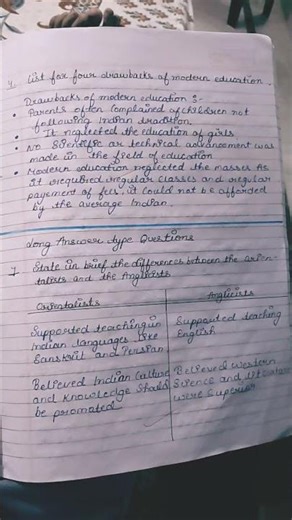 4. List for four drawbacks of modern education.
Drawbacks of modern education :-
• Parents often complained of children not
following Indian tradition
• It neglected the education of girls
• No Scientific or technical advancement was
made in the field of education
• Modern education neglected the masses As
it required regular classes and regular
payement of fees, it could not be afforded
by the average Indian.
Long Answer type Questions
1. State in brief the differences between the orien-
talists and the Anglicists
Orientalists
Anglicists
Supported teaching in
Indian languages like
Sanskrit and Persian
Supported teaching
English
Believed Indian Culture
and Knowledge Should
be promoted
Believed Western
Science and literature
were Superior